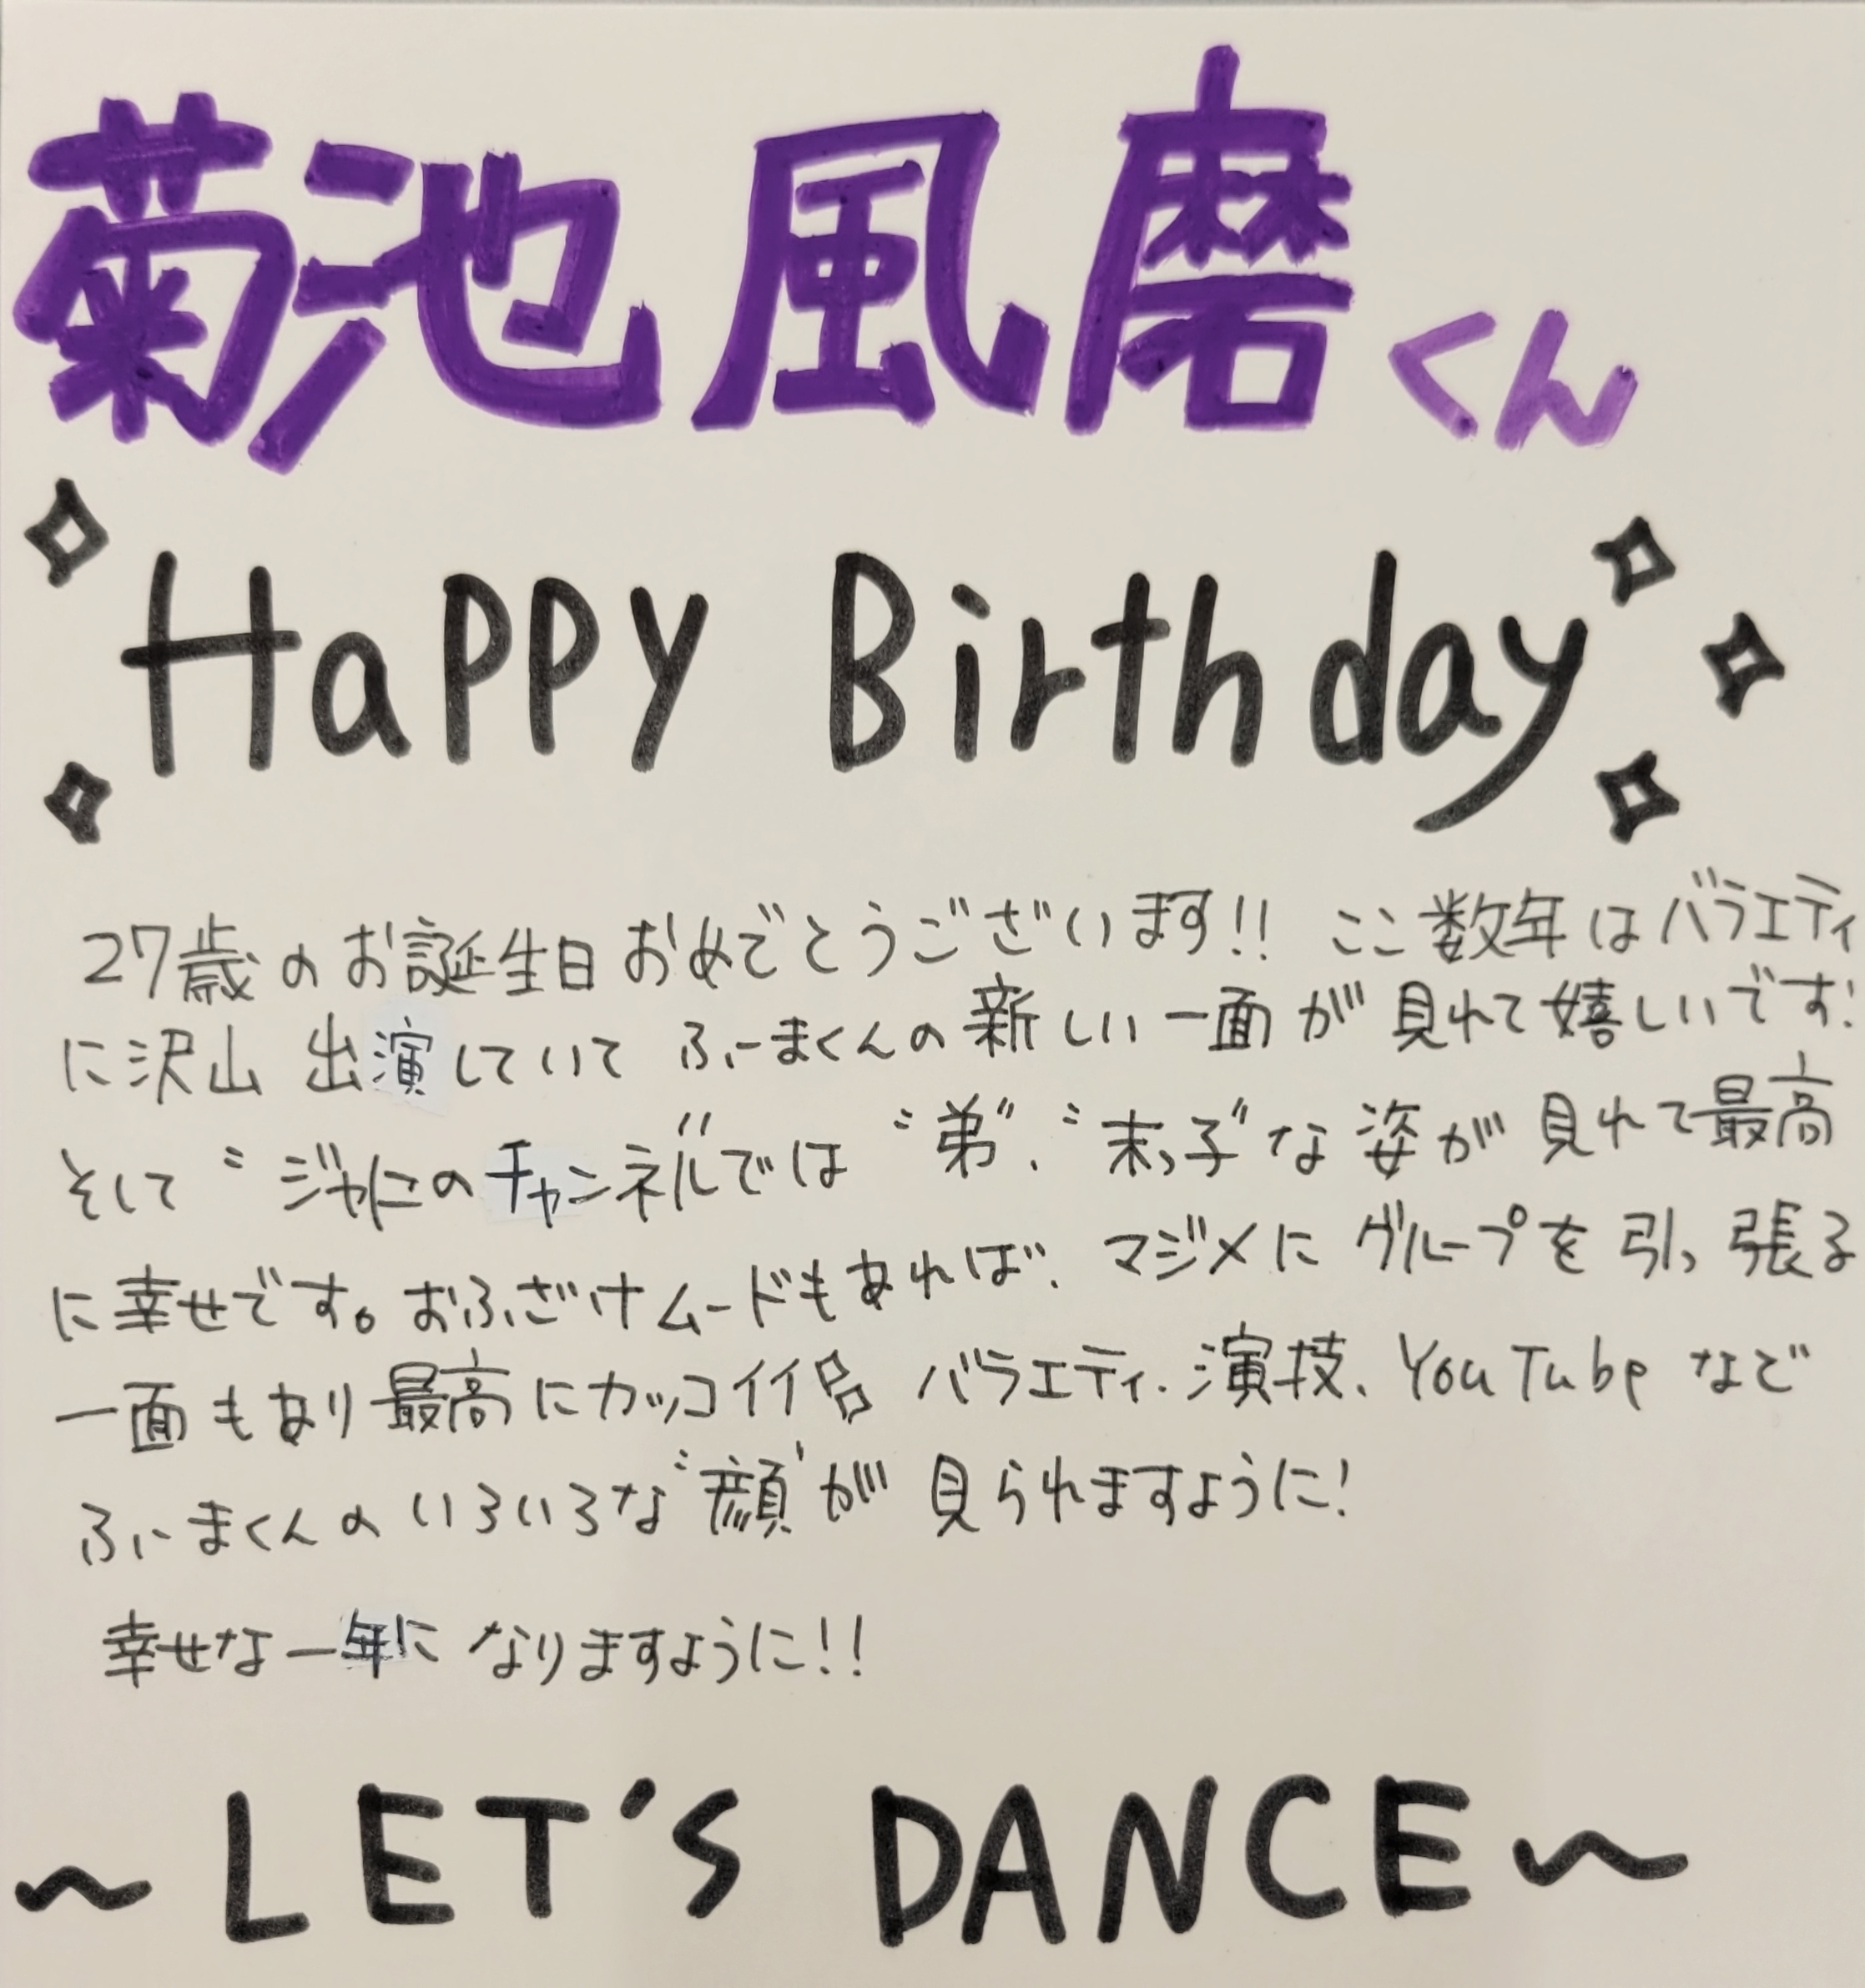 菊池風磨くん
Happy Birthday
27歳のお誕生日おめでとうございます!! ここ数年はバラエティ
に沢山 出演していて ふぅまくんの新しい一面が見れて嬉しいです!
そして〝ジャにのチャンネル〟では〝弟〟、〝末っ子〟な姿が見れて最高
に幸せです。おふざけムードもあれば、マジメにグループを引っ張る
一面もあり最高にカッコイイ💪 バラエティ、演技、YouTubeなどで
ふぅまくんのいろいろな〝顔〟が見られますように!
幸せな一年になりますように!!
~LET'S DANCE~